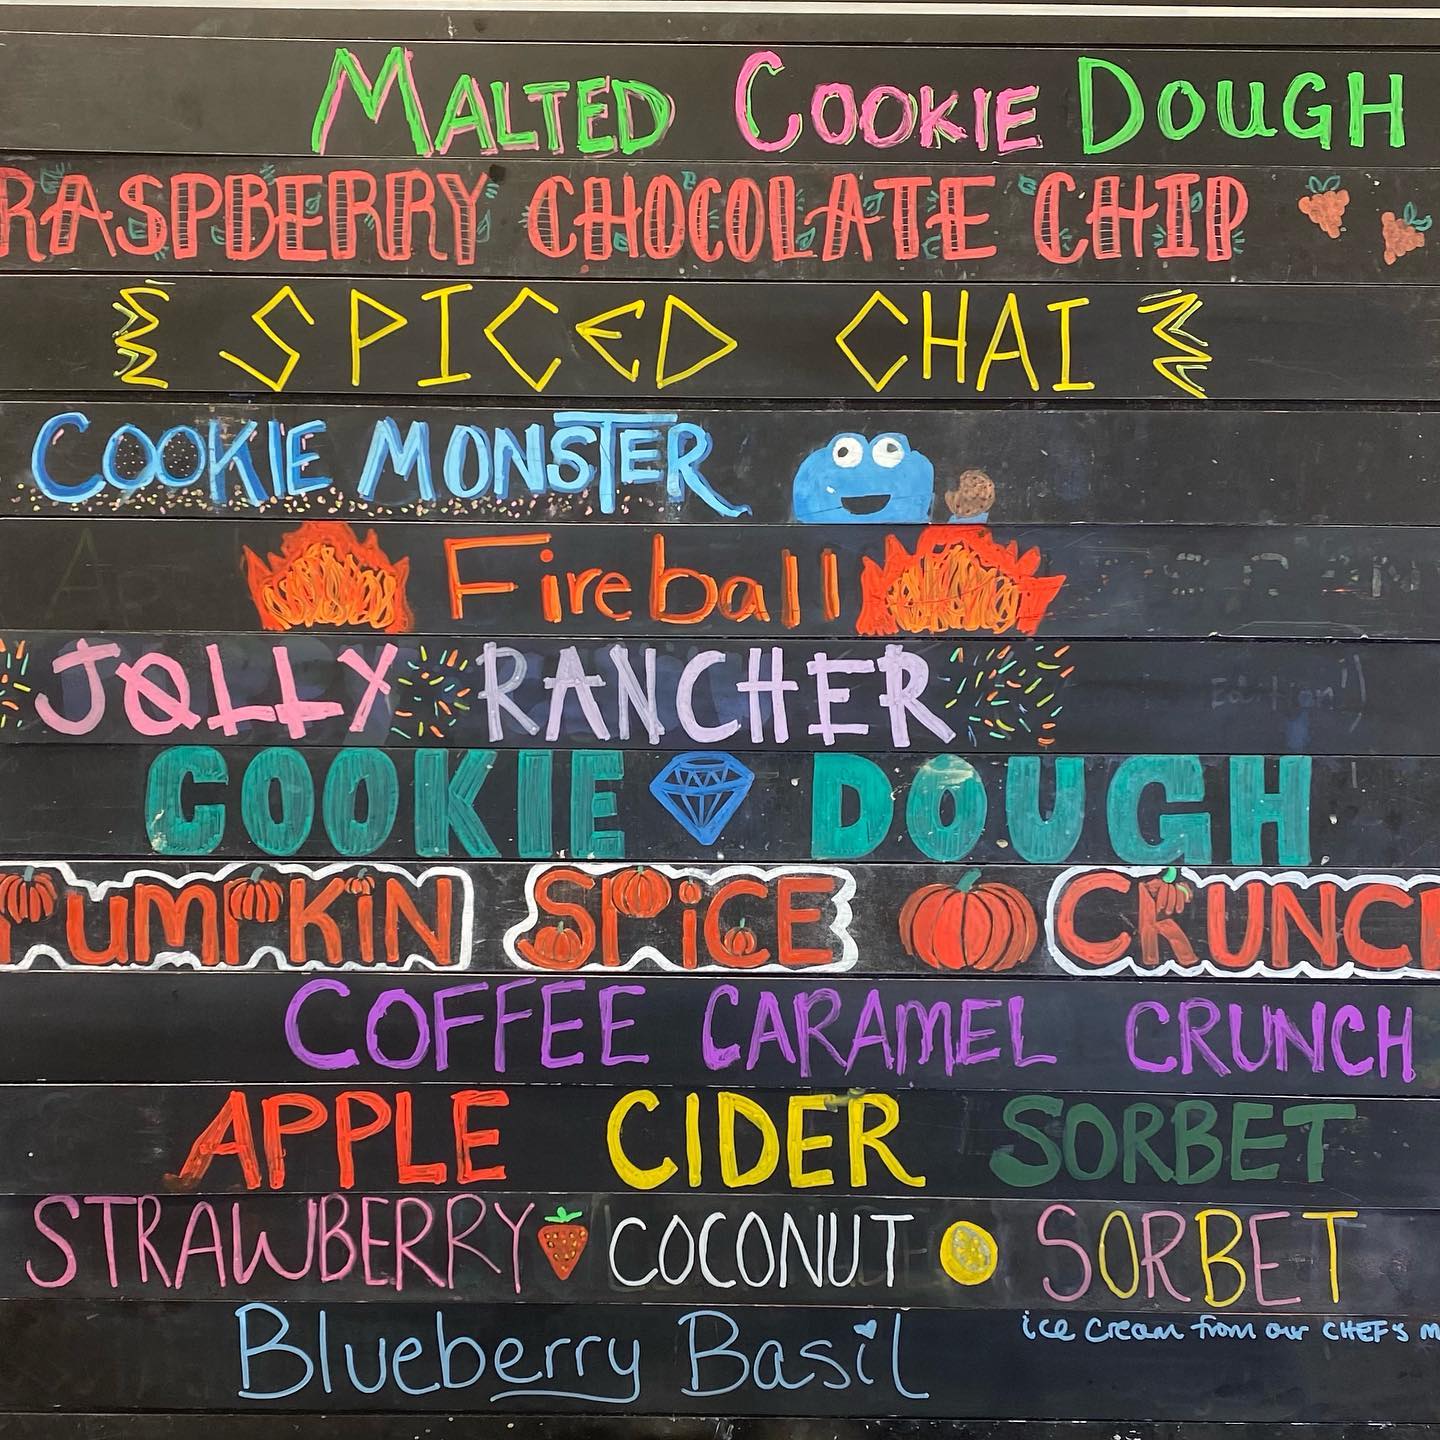 MALTED COOKIE DOUGH
RASPBERRY CHOCOLATE CHIP
SPICED CHAI
COOKIE MONSTER
Fireball
JOLLY RANCHER
COOKIE DOUGH
PUMPKIN SPiCE CRUNC
COFFEE CARAMEL CRUNCH
APPLE CIDER SORBET
STRAWBERRY COCONUT SORBET
Blueberry Basil
ice cream from our CHEF's M